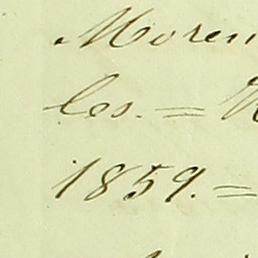 Moren
les. =
1859. =